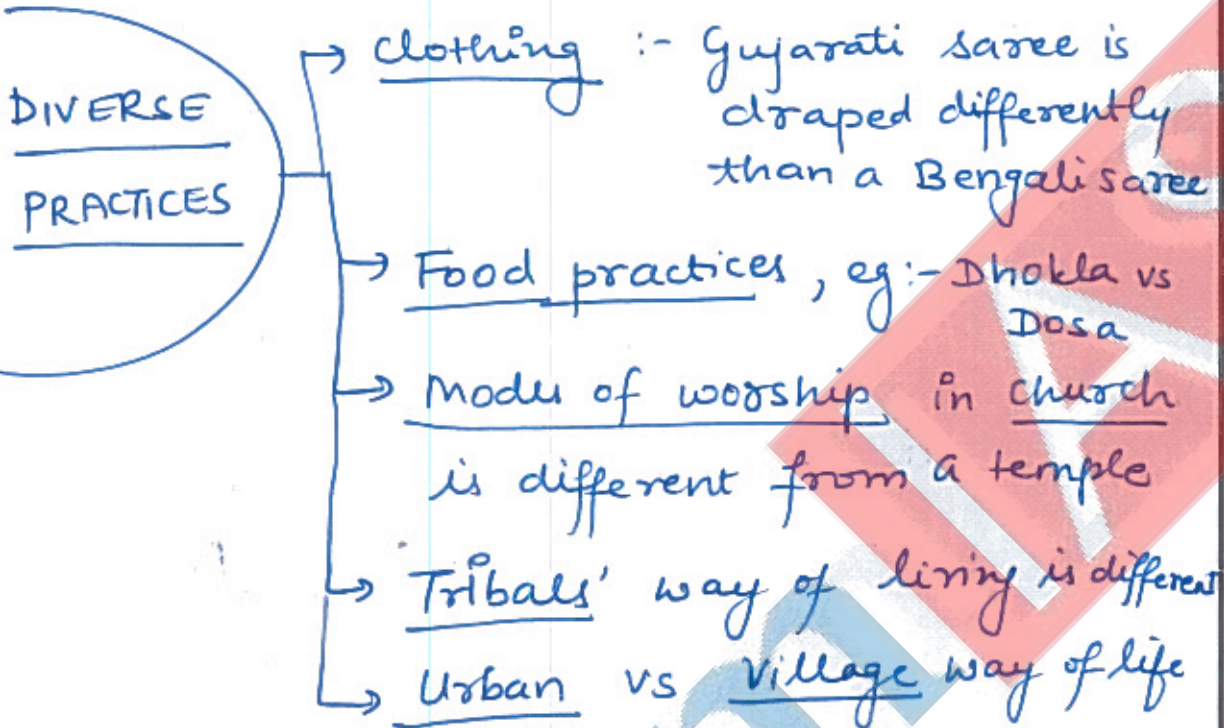 DIVERSE
PRACTICES
clothing :- Gujarati saree is
draped differently
than a Bengali saree
Food practices, eg:- Dhokla vs
Dosa
Modes of worship in church
is different from a temple
Tribals' way of living is different
Urban vs village way of life